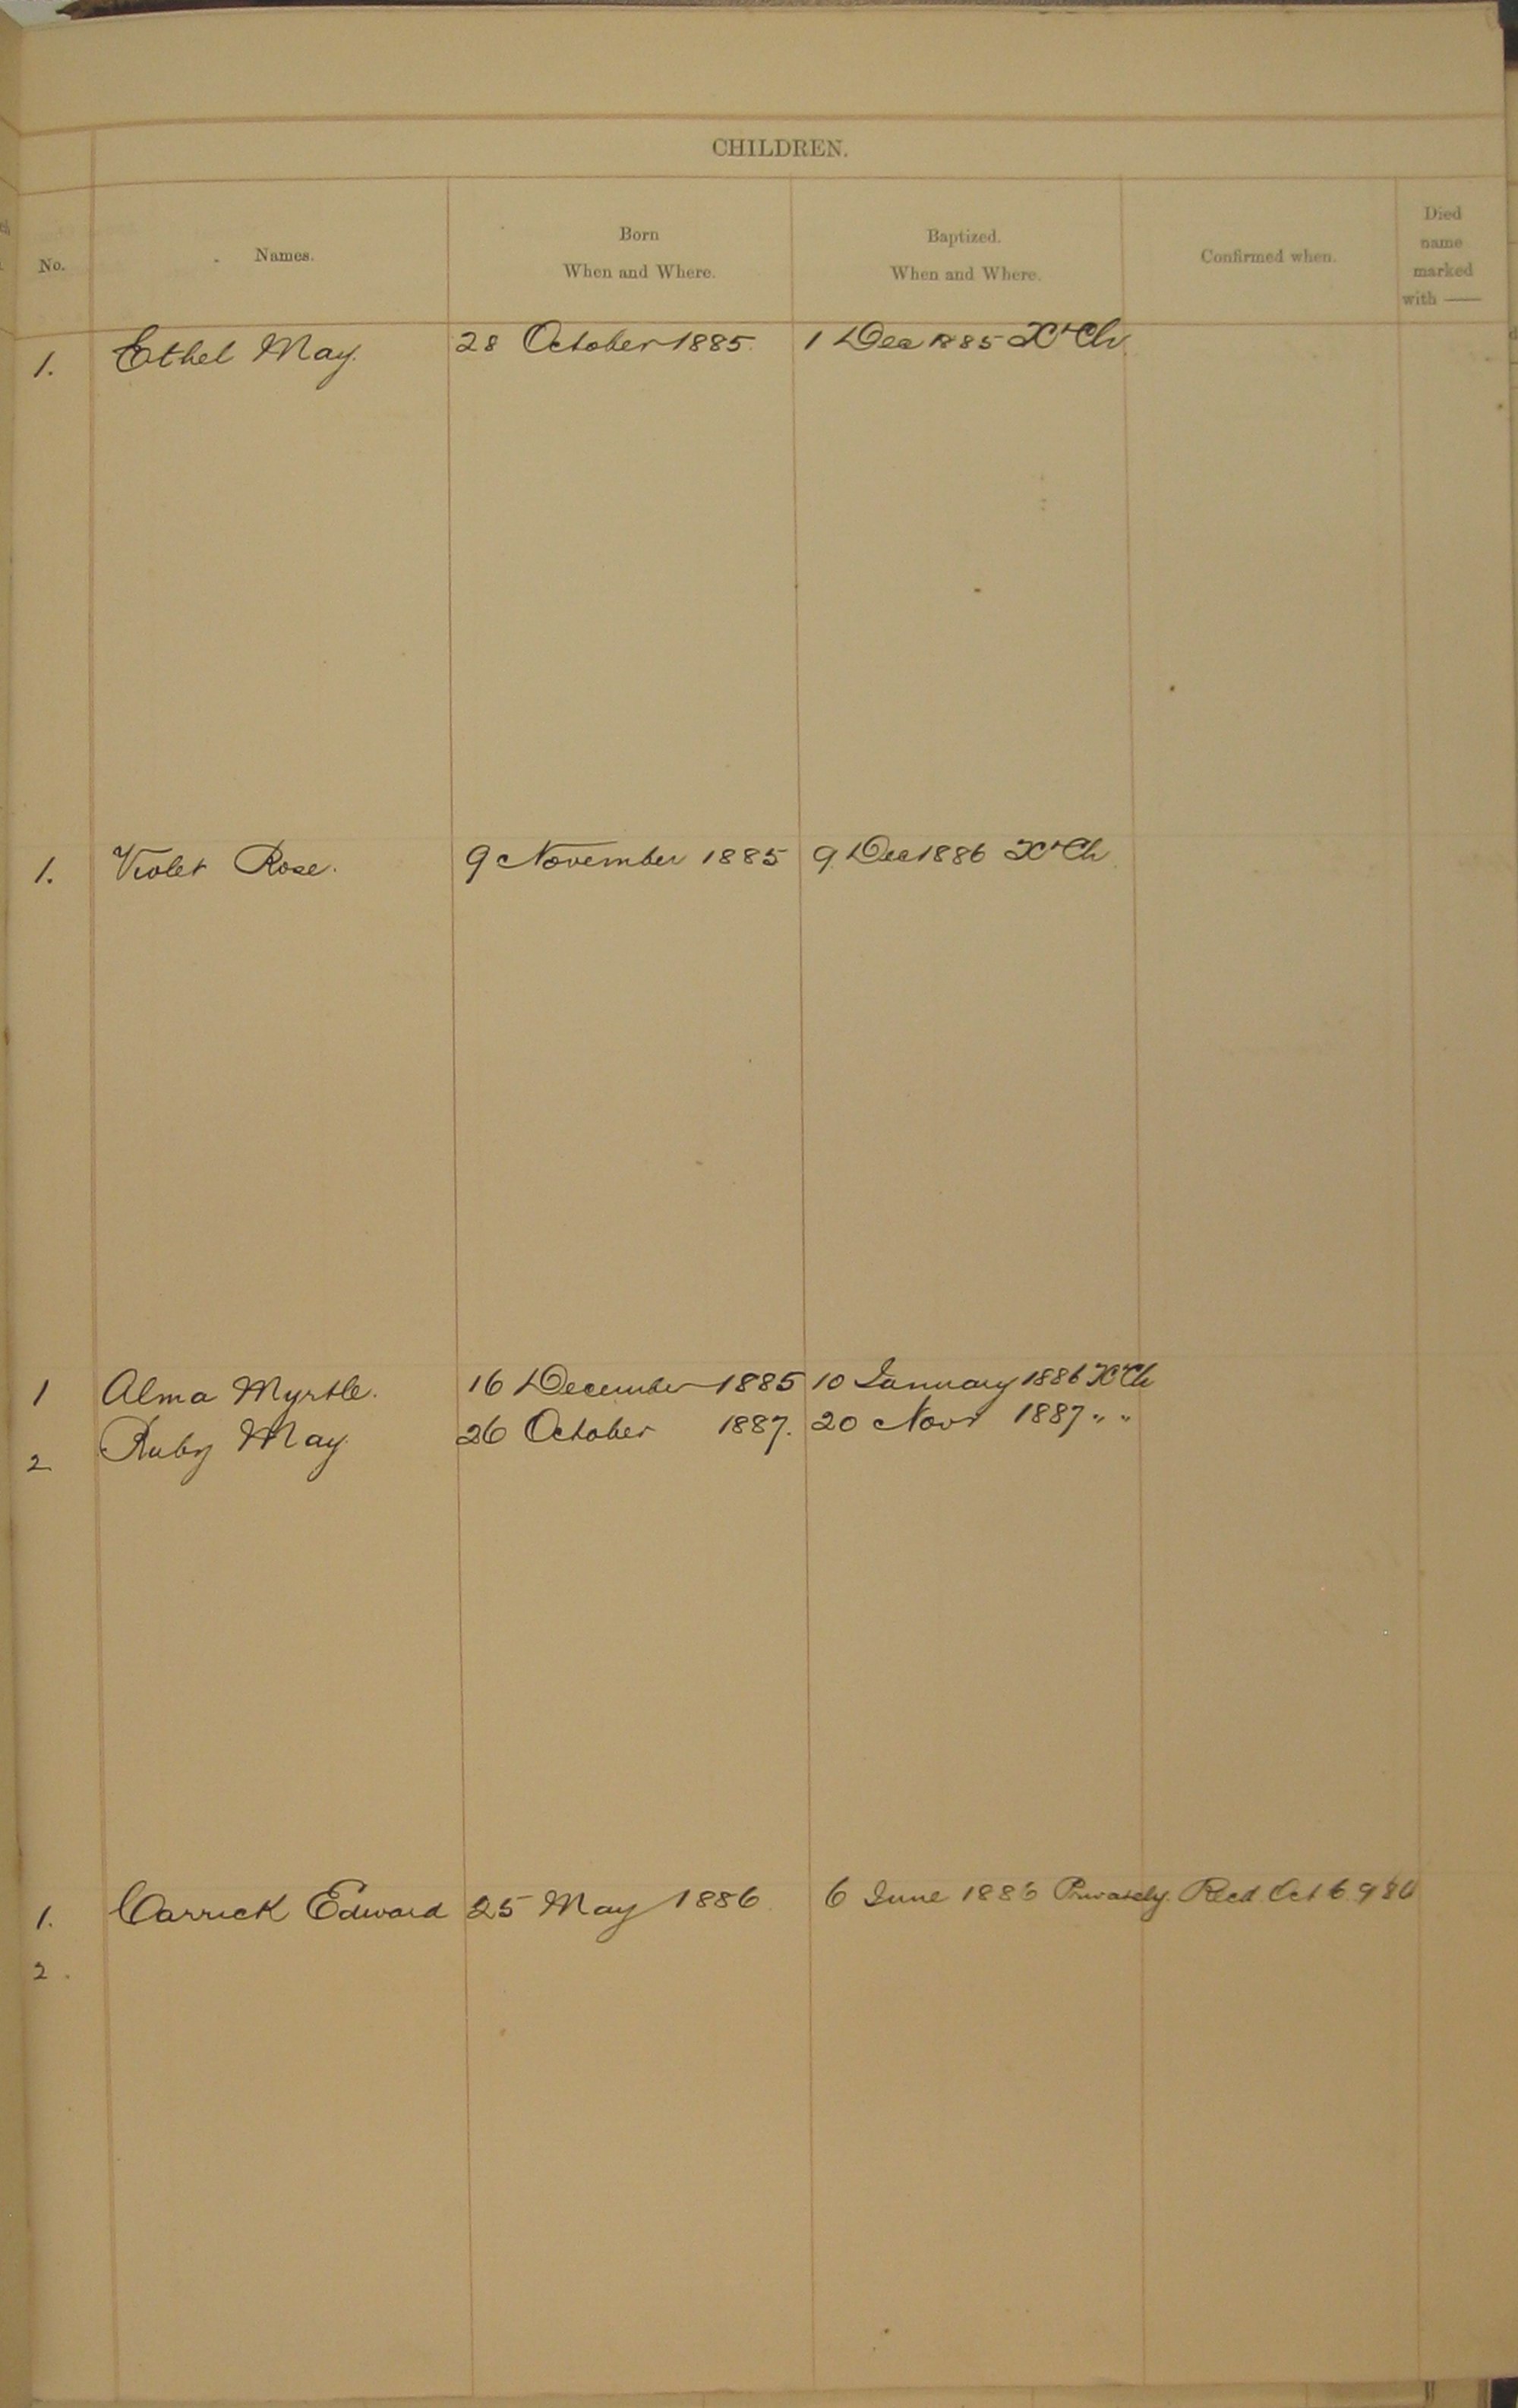 CHILDREN.
No.
Names.
Born
When and Where.
Baptized.
When and Where.
Confirmed when.
Died
name
marked
with —
1. Ethel May. 28 October 1885. 1 Dec 1885 Xt Ch.
1. Violet Rose. 9 November 1885 9 Dec 1886 Xt Ch.
1 Alma Myrtle. 16 December 1885 10 January 1886 Xt Ch
2 Ruby May. 26 October 1887. 20 Novr 1887 " "
1. Carrick Edward 25 May 1886 6 June 1886 Privately. Recd. Oct 6.
2.